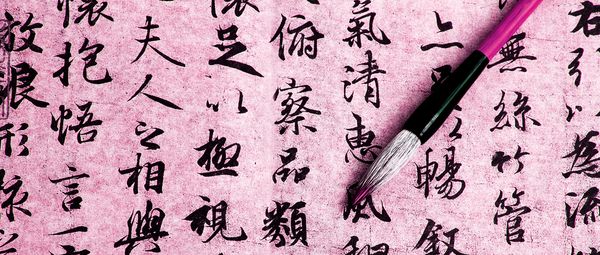 右引以為流
無絲竹管
亦足以暢敘
氣清惠風和
俯察品類
懷足以極視
夫人之相與
懷抱悟言一
放浪形骸